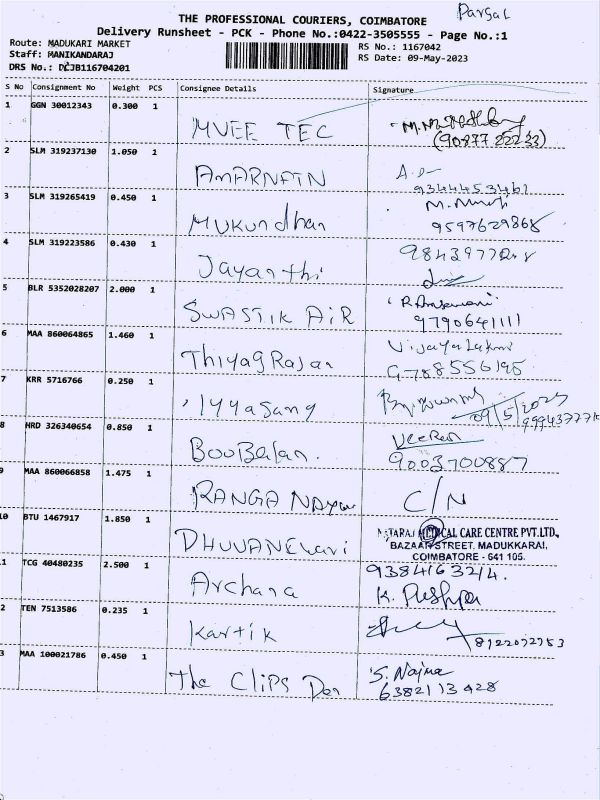 Parsal
THE PROFESSIONAL COURIERS, COIMBATORE
Delivery Runsheet - PCK - Phone No.:0422-3505555 - Page No.:1
Route: MADUKARI MARKET
RS No.: 1167042
Staff: MANIKANDARAJ
RS Date: 09-May-2023
DRS No.: DCJB116704201
S No Consignment No Weight PCS Consignee Details Signature
1 GGN 30012343 0.300 1 MVEE TEC
(90877 22233)
2 SLM 319237130 1.050 1 AMARNATN
9344453461
3 SLM 319265419 0.450 1 Mukundhan
9597629868
4 SLM 319223586 0.430 1 Jayanthi
5 BLR 5352028207 2.000 1 SWASTIK AIR
9790641111
6 MAA 860064865 1.460 1 ThiyagRajan Vijayalakmi
7 KRR 5716766 0.250 1 Iyyasang
09/5/2023
8 HRD 326340654 0.850 1 BooBalan. Veeran
9003700887
9 MAA 860066858 1.475 1 RANGA C/N
10 BTU 1467917 1.850 1 DHUVANEwari
MEDICAL CARE CENTRE PVT.LTD.,
BAZAAR STREET, MADUKKARAI,
COIMBATORE - 641 105.
1 TCG 40480235 2.500 1 Archana 9384163214.
K. Pushpa
2 TEN 7513586 0.235 1 Kartik
3 MAA 100021786 0.450 1 The Clips Den S. Najma
6382113428